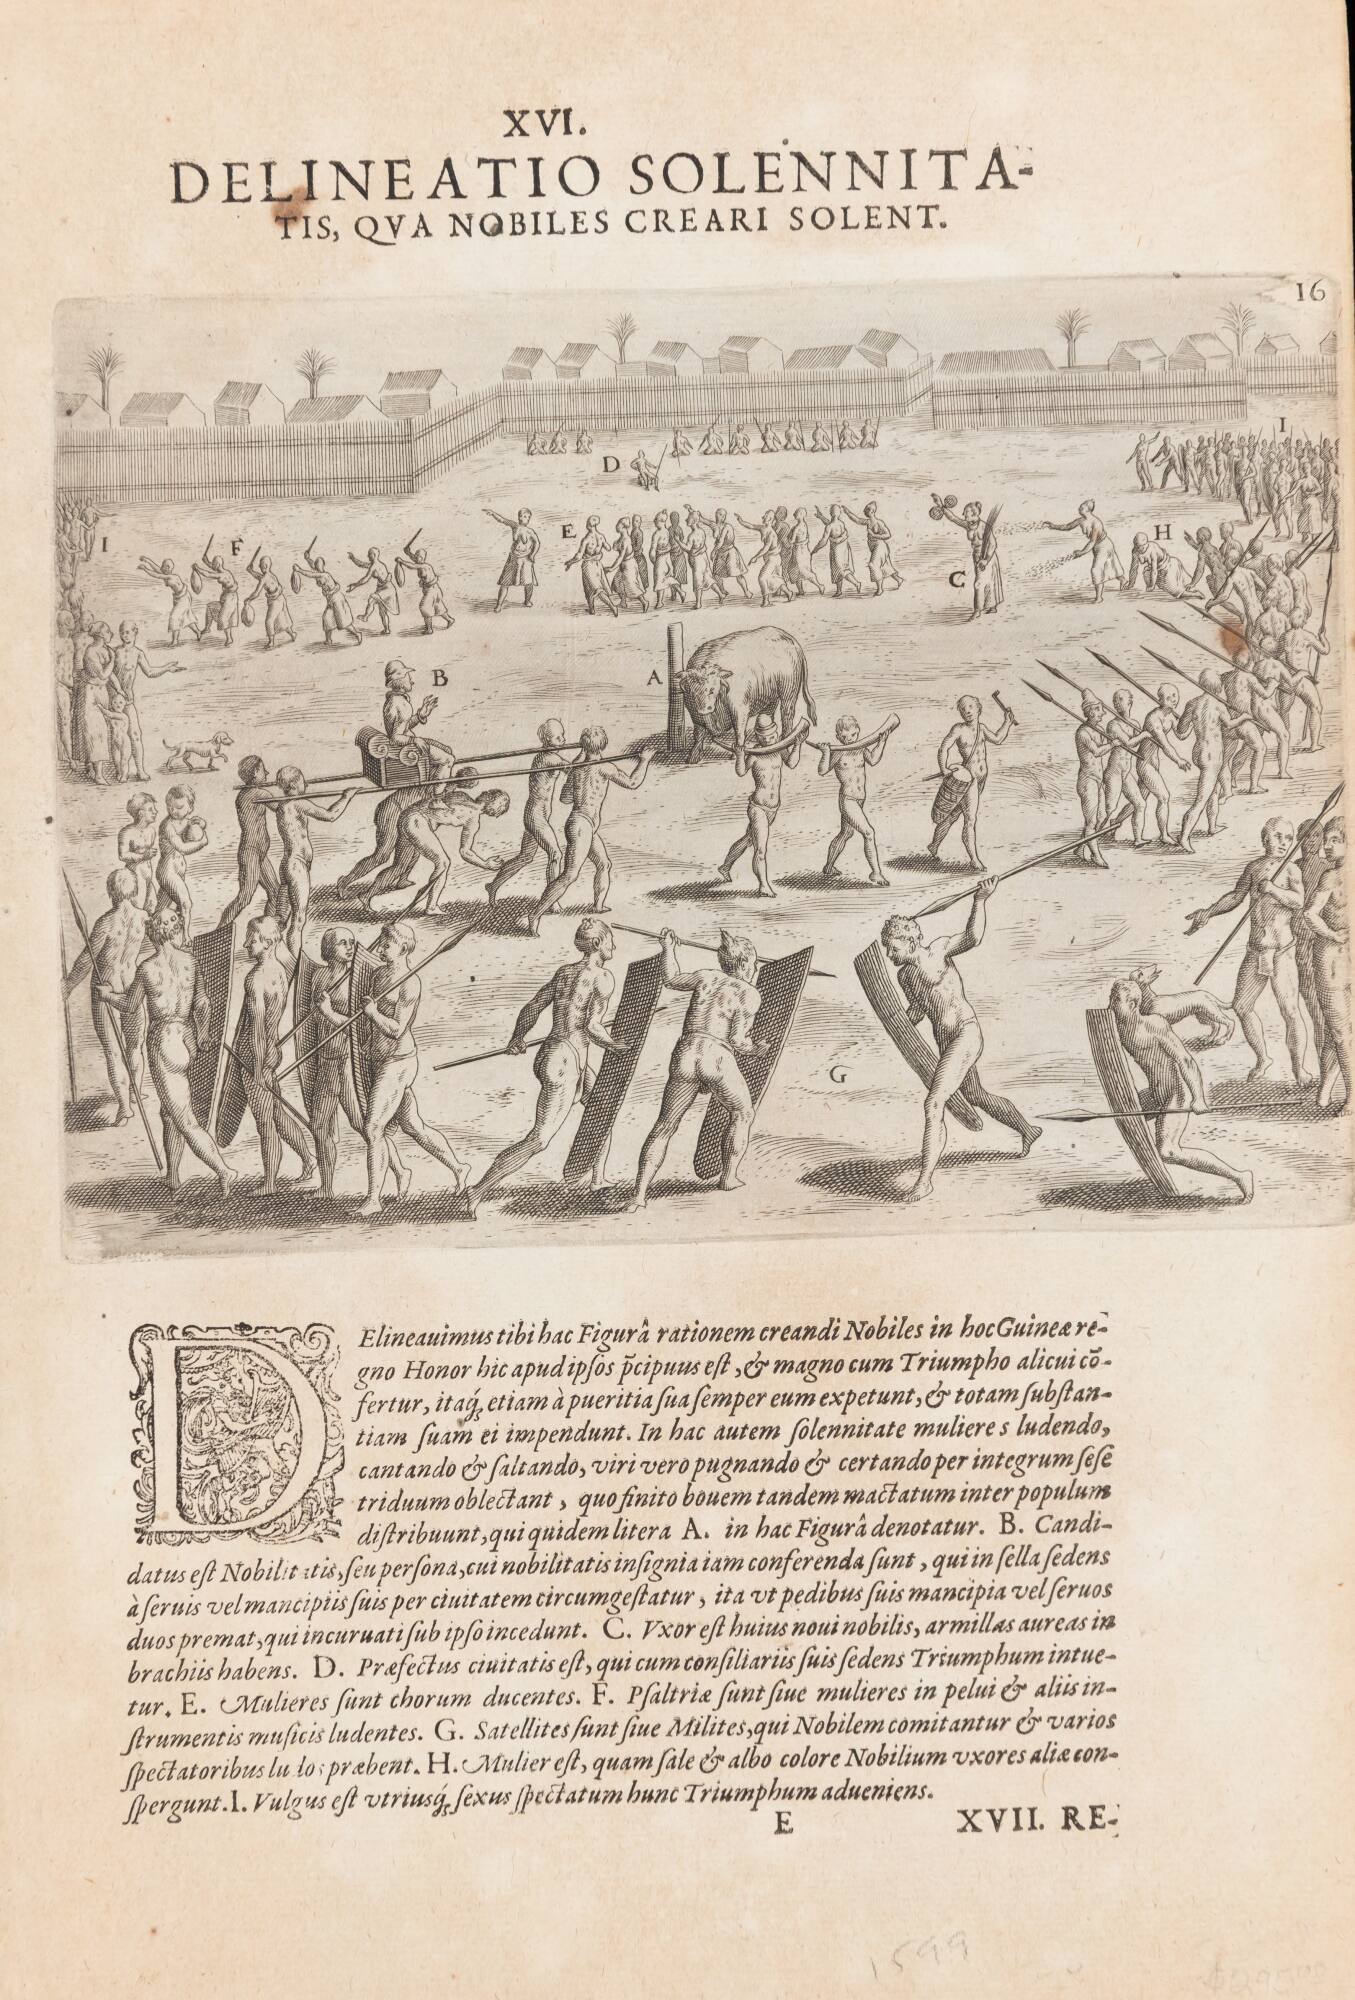 XVI.
DELINEATIO SOLENNITA-
TIS, QVA NOBILES CREARI SOLENT.
16
I
D
I
F
E
H
C
B
A
G
DElineauimus tibi hac Figurâ rationem creandi Nobiles in hoc Guineæ re-
gno Honor hic apud ipsos p̄cipuus est, & magno cum Triumpho alicui cō-
fertur, itaq́₃ etiam à pueritia sua semper eum expetunt, & totam substan-
tiam suam ei impendunt. In hac autem solennitate mulieres ludendo,
cantando & saltando, viri vero pugnando & certando per integrum sese
triduum oblectant, quo finito bouem tandem mactatum inter populum
distribuunt, qui quidem litera A. in hac Figurâ denotatur. B. Candi-
datus est Nobilitatis, seu persona, cui nobilitatis insignia iam conferenda sunt, qui in sella sedens
à seruis vel mancipiis suis per ciuitatem circumgestatur, ita vt pedibus suis mancipia vel seruos
duos premat, qui incuruati sub ipso incedunt. C. Vxor est huius noui nobilis, armillas aureas in
brachiis habens. D. Præfectus ciuitatis est, qui cum consiliariis suis sedens Triumphum intue-
tur. E. Mulieres sunt chorum ducentes. F. Psaltriæ sunt siue mulieres in pelui & aliis in-
strumentis musicis ludentes. G. Satellites sunt siue Milites, qui Nobilem comitantur & varios
spectatoribus ludos præbent. H. Mulier est, quam sale & albo colore Nobilium vxores aliæ con-
spergunt. I. Vulgus est vtriusq́₃ sexus spectatum hunc Triumphum adueniens.
E XVII. RE-
1599